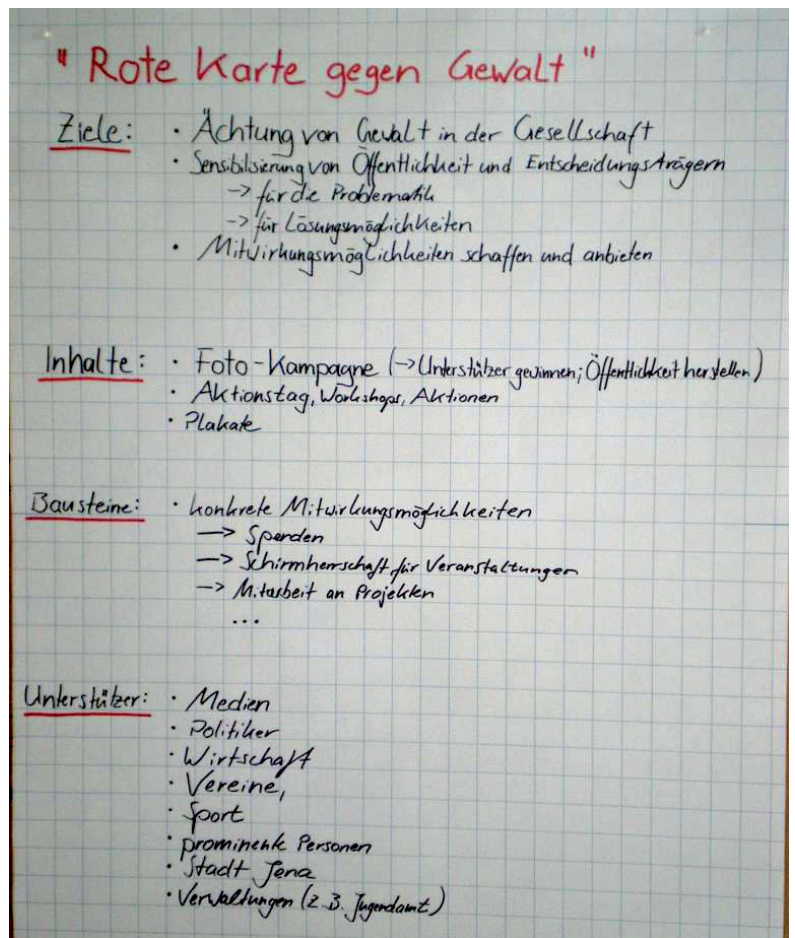 "Rote Karte gegen Gewalt"
Ziele: · Ächtung von Gewalt in der Gesellschaft
· Sensibilisierung von Öffentlichkeit und Entscheidungsträgern
-> für die Problematik
-> für Lösungsmöglichkeiten
· Mitwirkungsmöglichkeiten schaffen und anbieten
Inhalte: · Foto-Kampagne (-> Unterstützer gewinnen; Öffentlichkeit herstellen)
· Aktionstag, Workshops, Aktionen
· Plakate
Bausteine: · konkrete Mitwirkungsmöglichkeiten
-> Spenden
-> Schirmherrschaft für Veranstaltungen
-> Mitarbeit an Projekten
...
Unterstützer: · Medien
· Politiker
· Wirtschaft
· Vereine,
· Sport
· prominente Personen
· Stadt Jena
· Verwaltungen (z.B. Jugendamt)